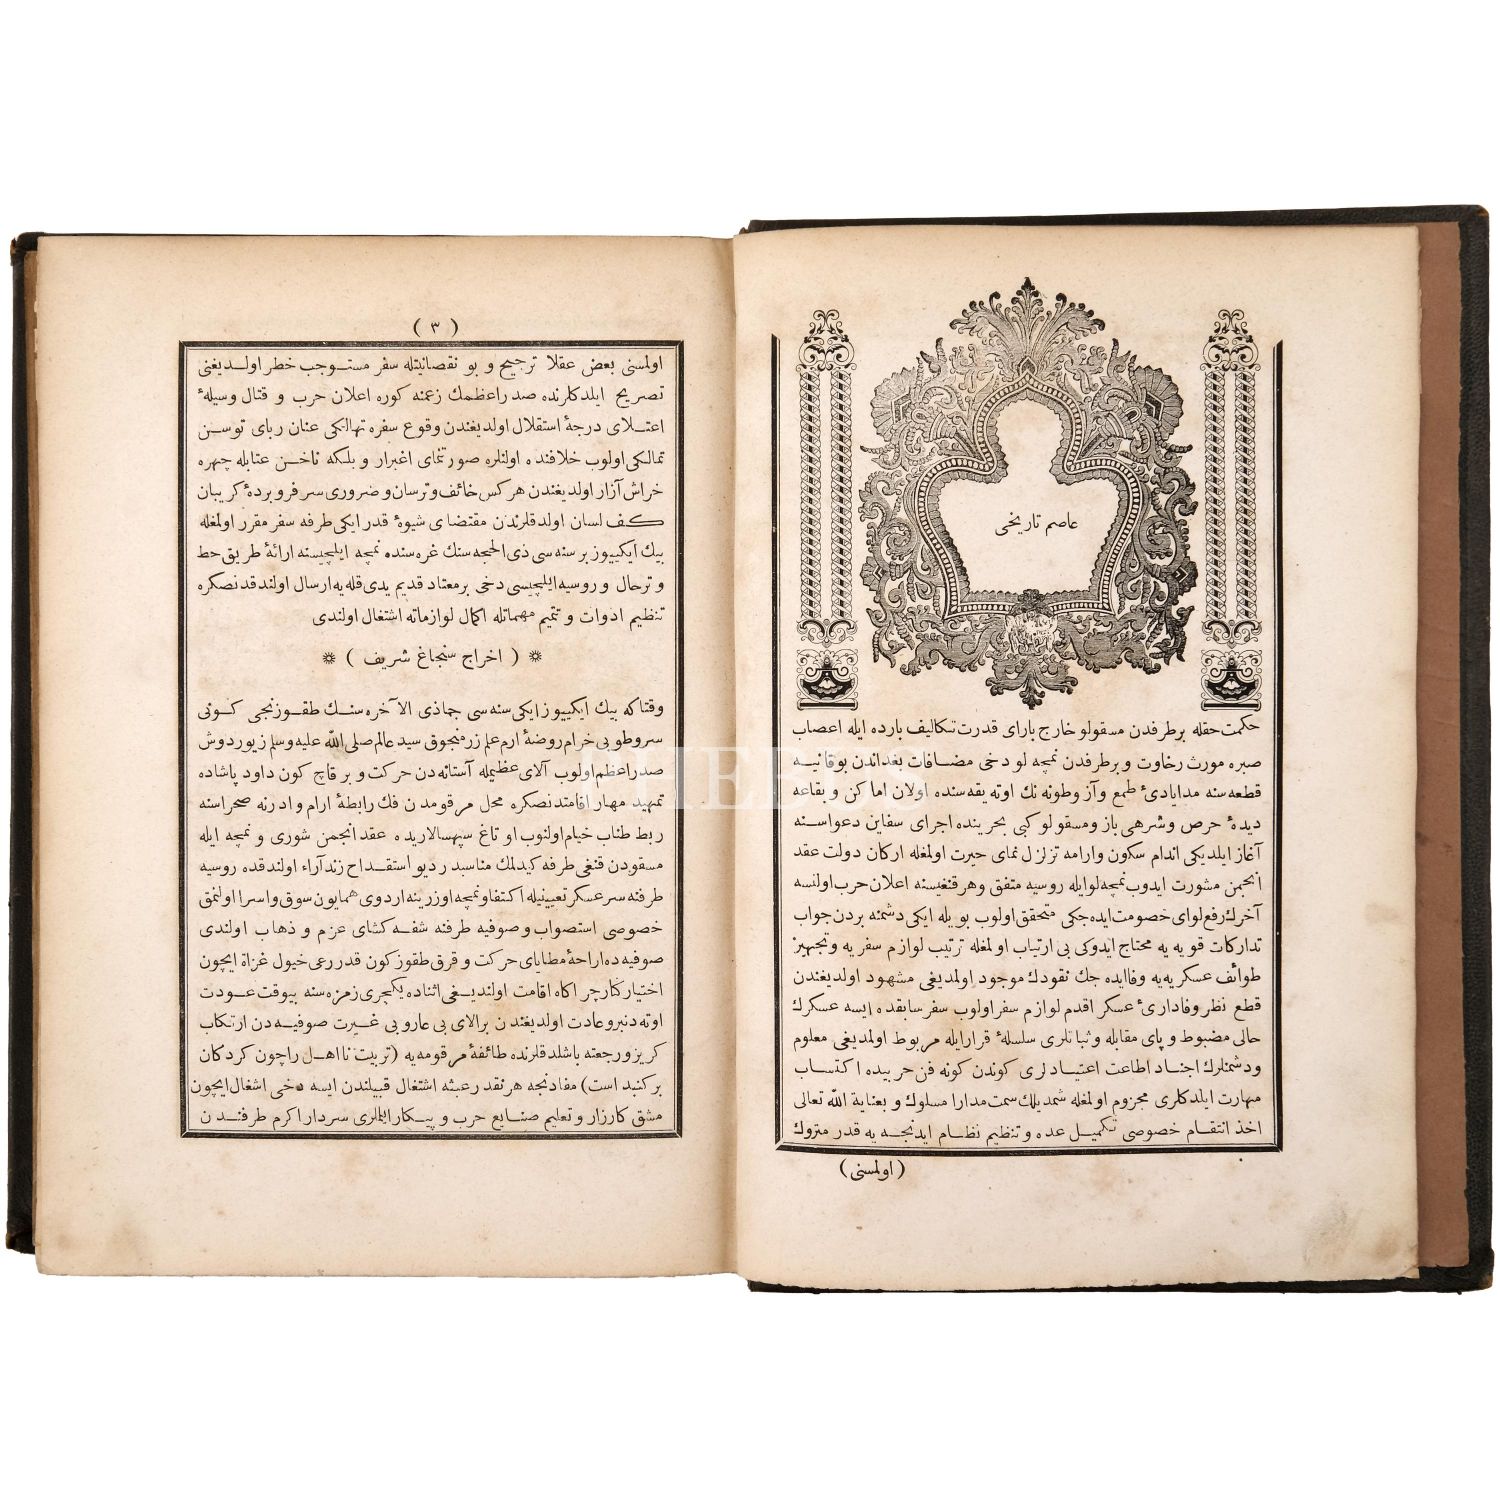 عاصم تاریخی
حکمت حقله بر طرفدن مسقولو خارج بارای قدرت تکالیف بارده ایله اعصاب
صبره مورث رخاوت و بر طرفدن نمچه لو دخی مضافات بغداندن بوقانیه
قطعه سنه مدایادیٔ طمع وآز وطونه نك اوته یقه سنده اولان اماکن و بقاعه
دیدهٔ حرص وشرهی باز ومسقولو کبی بحربنده اجرای سفاین دعواسنه
آغاز ایلدیکی اندام سکون وآرامه تزلزل نمای حیرت اولمغله ارکان دولت عقد
انجمن مشورت ایدوب نمچه لو ایله روسیه متفق وهر قنغیسنه اعلان حرب اولنسه
آخرك رفع لوای خصومت ایده جکی متحقق اولوب بویله ایکی دشمنه بردن جواب
تدارکات قویه یه محتاج ایدوکی بی ارتیاب اولمغله ترتیب لوازم سفریه وتجهیز
طوائف عسکریه یه وفا ایده جك نقودك موجود اولمدیغی مشهود اولدیغندن
قطع نظر وفاداریٔ عسکر اقدم لوازم سفر اولوب سفر سابقده ایسه عسکرك
حالی مضبوط و پای مقابله وثباتلری سلسلهٔ قرار ایله مربوط اولمدیغی معلوم
ودشمنلرك اجناد اطاعت اعتیادلری کوندن کونه فن حربیده اکتساب
مهارت ایلدکلری مجزوم اولمغله شمدیلك سمت مدارا مسلوك و بعنایة الله تعالی
اخذ انتقام خصوصی تکمیل عده و تنظیم نظام ایدنجه یه قدر متروك
(اولمسنی)
( ٣ )
اولمسنی بعض عقلا ترجیح و بو نقصانیتله سفر مستوجب خطر اولدیغنی
تصریح ایلدکلرنده صدراعظمك زعمنه کوره اعلان حرب و قتال وسیلهٔ
اعتلای درجهٔ استقلال اولدیغندن وقوع سفره تهالکی عنان ربای توسن
تمالکی اولوب خلافنده اولنلره صورتنمای اغبرار و بلکه ناخن عتابله چهره
خراش آزار اولدیغندن هرکس خائف وترسان و ضروری سرفروبردهٔ کریبان
کف لسان اولدقلرندن مقتضای شیوهٔ قدر ایکی طرفه سفر مقرر اولمغله
بیك ایکیوز بر سنه سی ذی الحجه سنك غره سنده نمچه ایلچیسنه ارائهٔ طریق حط
و ترحال و روسیه ایلچیسی دخی بر معتاد قدیم یدی قله یه ارسال اولندقدنصکره
تنظیم ادوات و تتمیم مهماتله اکمال لوازماته اشتغال اولندی
( اخراج سنجاغ شریف )
وقتاکه بیك ایکیوز ایکی سنه سی جماذی الآخره سنك طقوزنجی کونی
سروطوبی خرام روضهٔ ارم علم زرمنجوق سید عالم صلی الله علیه وسلم زیور دوش
صدراعظم اولوب آلای عظیمله آستانه دن حرکت و بر قاچ کون داود پاشاده
تمهید مهار اقامتدنصکره محل مرقومدن فك رابطهٔ آرام و ادرنه صحراسنه
ربط طناب خیام اولنوب اوتاغ سپهسالاریده عقد انجمن شوری و نمچه ایله
مسقودن قنغی طرفه کیدلمك مناسبدر دیو استقداح زند آراء اولندقده روسیه
طرفنه سرعسکر تعیینیله اکتفا ونمچه اوزرینه اردوی همایون سوق واسرا اولنمق
خصوصی استصواب وصوفیه طرفنه شقه کشای عزم و ذهاب اولندی
صوفیه ده اراحهٔ مطایای حرکت و قرق طقوز کون قدر رعی خیول غزاة ایچون
اختیار کارچراکاه اقامت اولندیغی اثناده یکیچری زمره سنه بیوقت عودت
اوته دنبرو عادت اولدیغندن برالای بی عار و بی غیرت صوفیه دن ارتکاب
کریز ورجعته باشلدقلرنده طائفهٔ مرقومه یه (تربیت نااهل راچون کردکان
برکنبد است) مفادنجه هرنقدر عبثه اشتغال قبیلندن ایسه دخی اشغال ایچون
مشق کارزار و تعلیم صنایع حرب و پیکار ایلملری سردار اکرم طرفندن
HEBUS